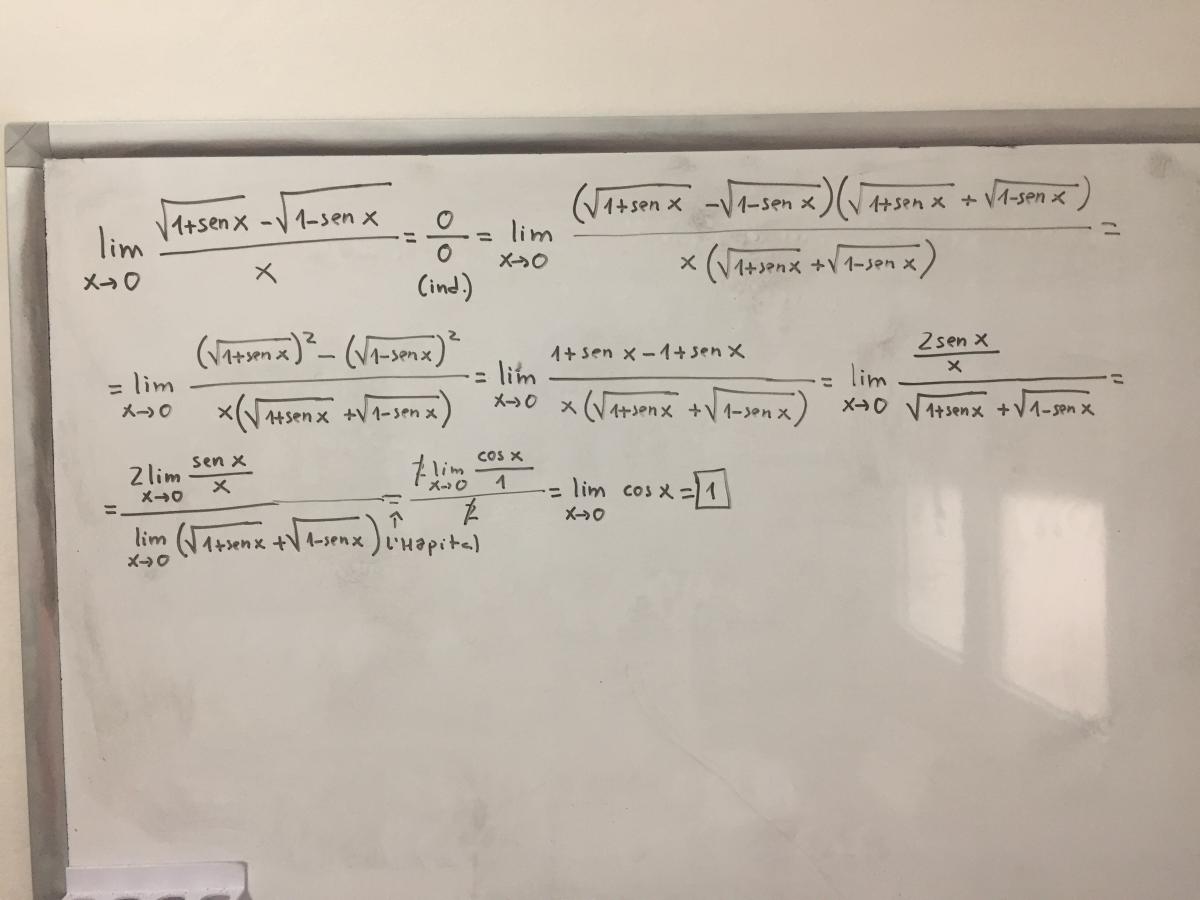 lim x→0 (√(1+sen x) - √(1-sen x)) / x = 0/0 (ind.) = lim x→0 ((√(1+sen x) - √(1-sen x))(√(1+sen x) + √(1-sen x))) / (x(√(1+sen x) + √(1-sen x))) =
= lim x→0 ((√(1+sen x))² - (√(1-sen x))²) / (x(√(1+sen x) + √(1-sen x))) = lim x→0 (1+sen x-1+sen x) / (x(√(1+sen x) + √(1-sen x))) = lim x→0 (2sen x / x) / (√(1+sen x) + √(1-sen x)) =
= (2 lim x→0 sen x / x) / (lim x→0 (√(1+sen x) + √(1-sen x))) = ↑ L'Hôpital (2 lim x→0 cos x / 1) / 2 = lim x→0 cos x = 1